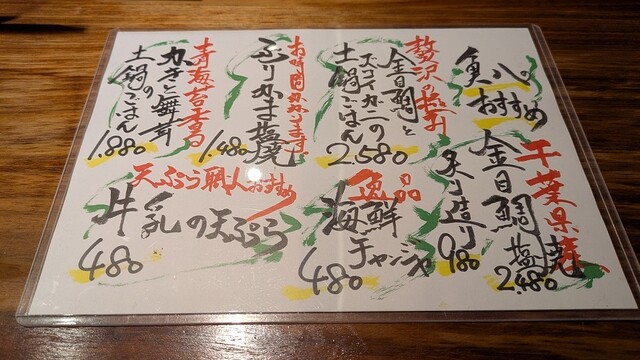 魚八の
おすすめ
千葉県産
金目鯛塩焼
2.480
炙り造り
980
贅沢の極み
金目鯛と
ズワイガニの
土鍋ごはん
2.580
逸品
海鮮
チャンジャ
480
お時間かかります
ぶりかま塩焼
1.480
青海苔香る
カキと舞茸
の
土鍋ごはん
1.880
天ぷら職人おすすめ
牛乳の天ぷら
480